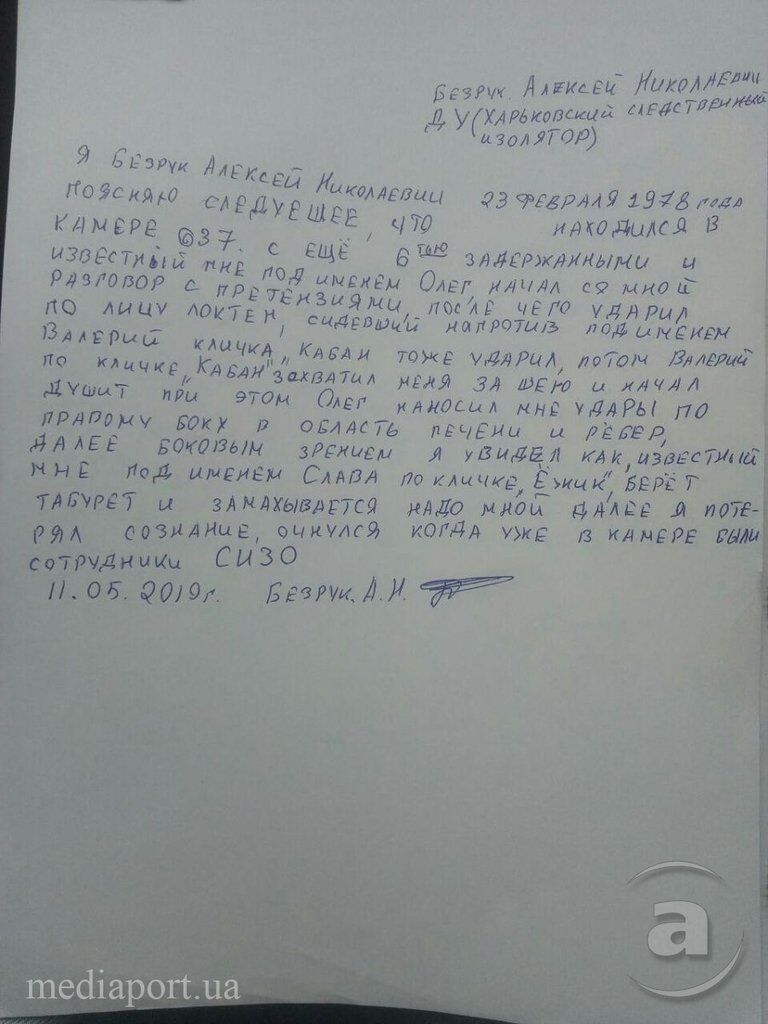 Безрук Алексей Николаевич
ДУ (Харьковский следственный
изолятор)
Я Безрук Алексей Николаевич 23 февраля 1978 года
поясняю следуещее, что находился в
камере 637. с ещё 6тью задержанными и
известный мне под именем Олег, начал ся мной
разговор с претензиями, после чего ударил
по лицу локтем, сидевший напротив под именем
Валерий кличка „Кабан тоже ударил, потом Валерий
по кличке „Кабан" захватил меня за шею и начал
душит при этом Олег наносил мне удары по
правому боку в область печени и рёбер,
далее боковым зрением я увидел как, известный
мне под именем Слава по кличке „Ёжик", берёт
табурет и замахывается надо мной далее я поте-
рял сознание, очнулся когда уже в камере были
сотрудники СИЗО
11.05.2019г. Безрук. А. Н.
mediaport.ua
a